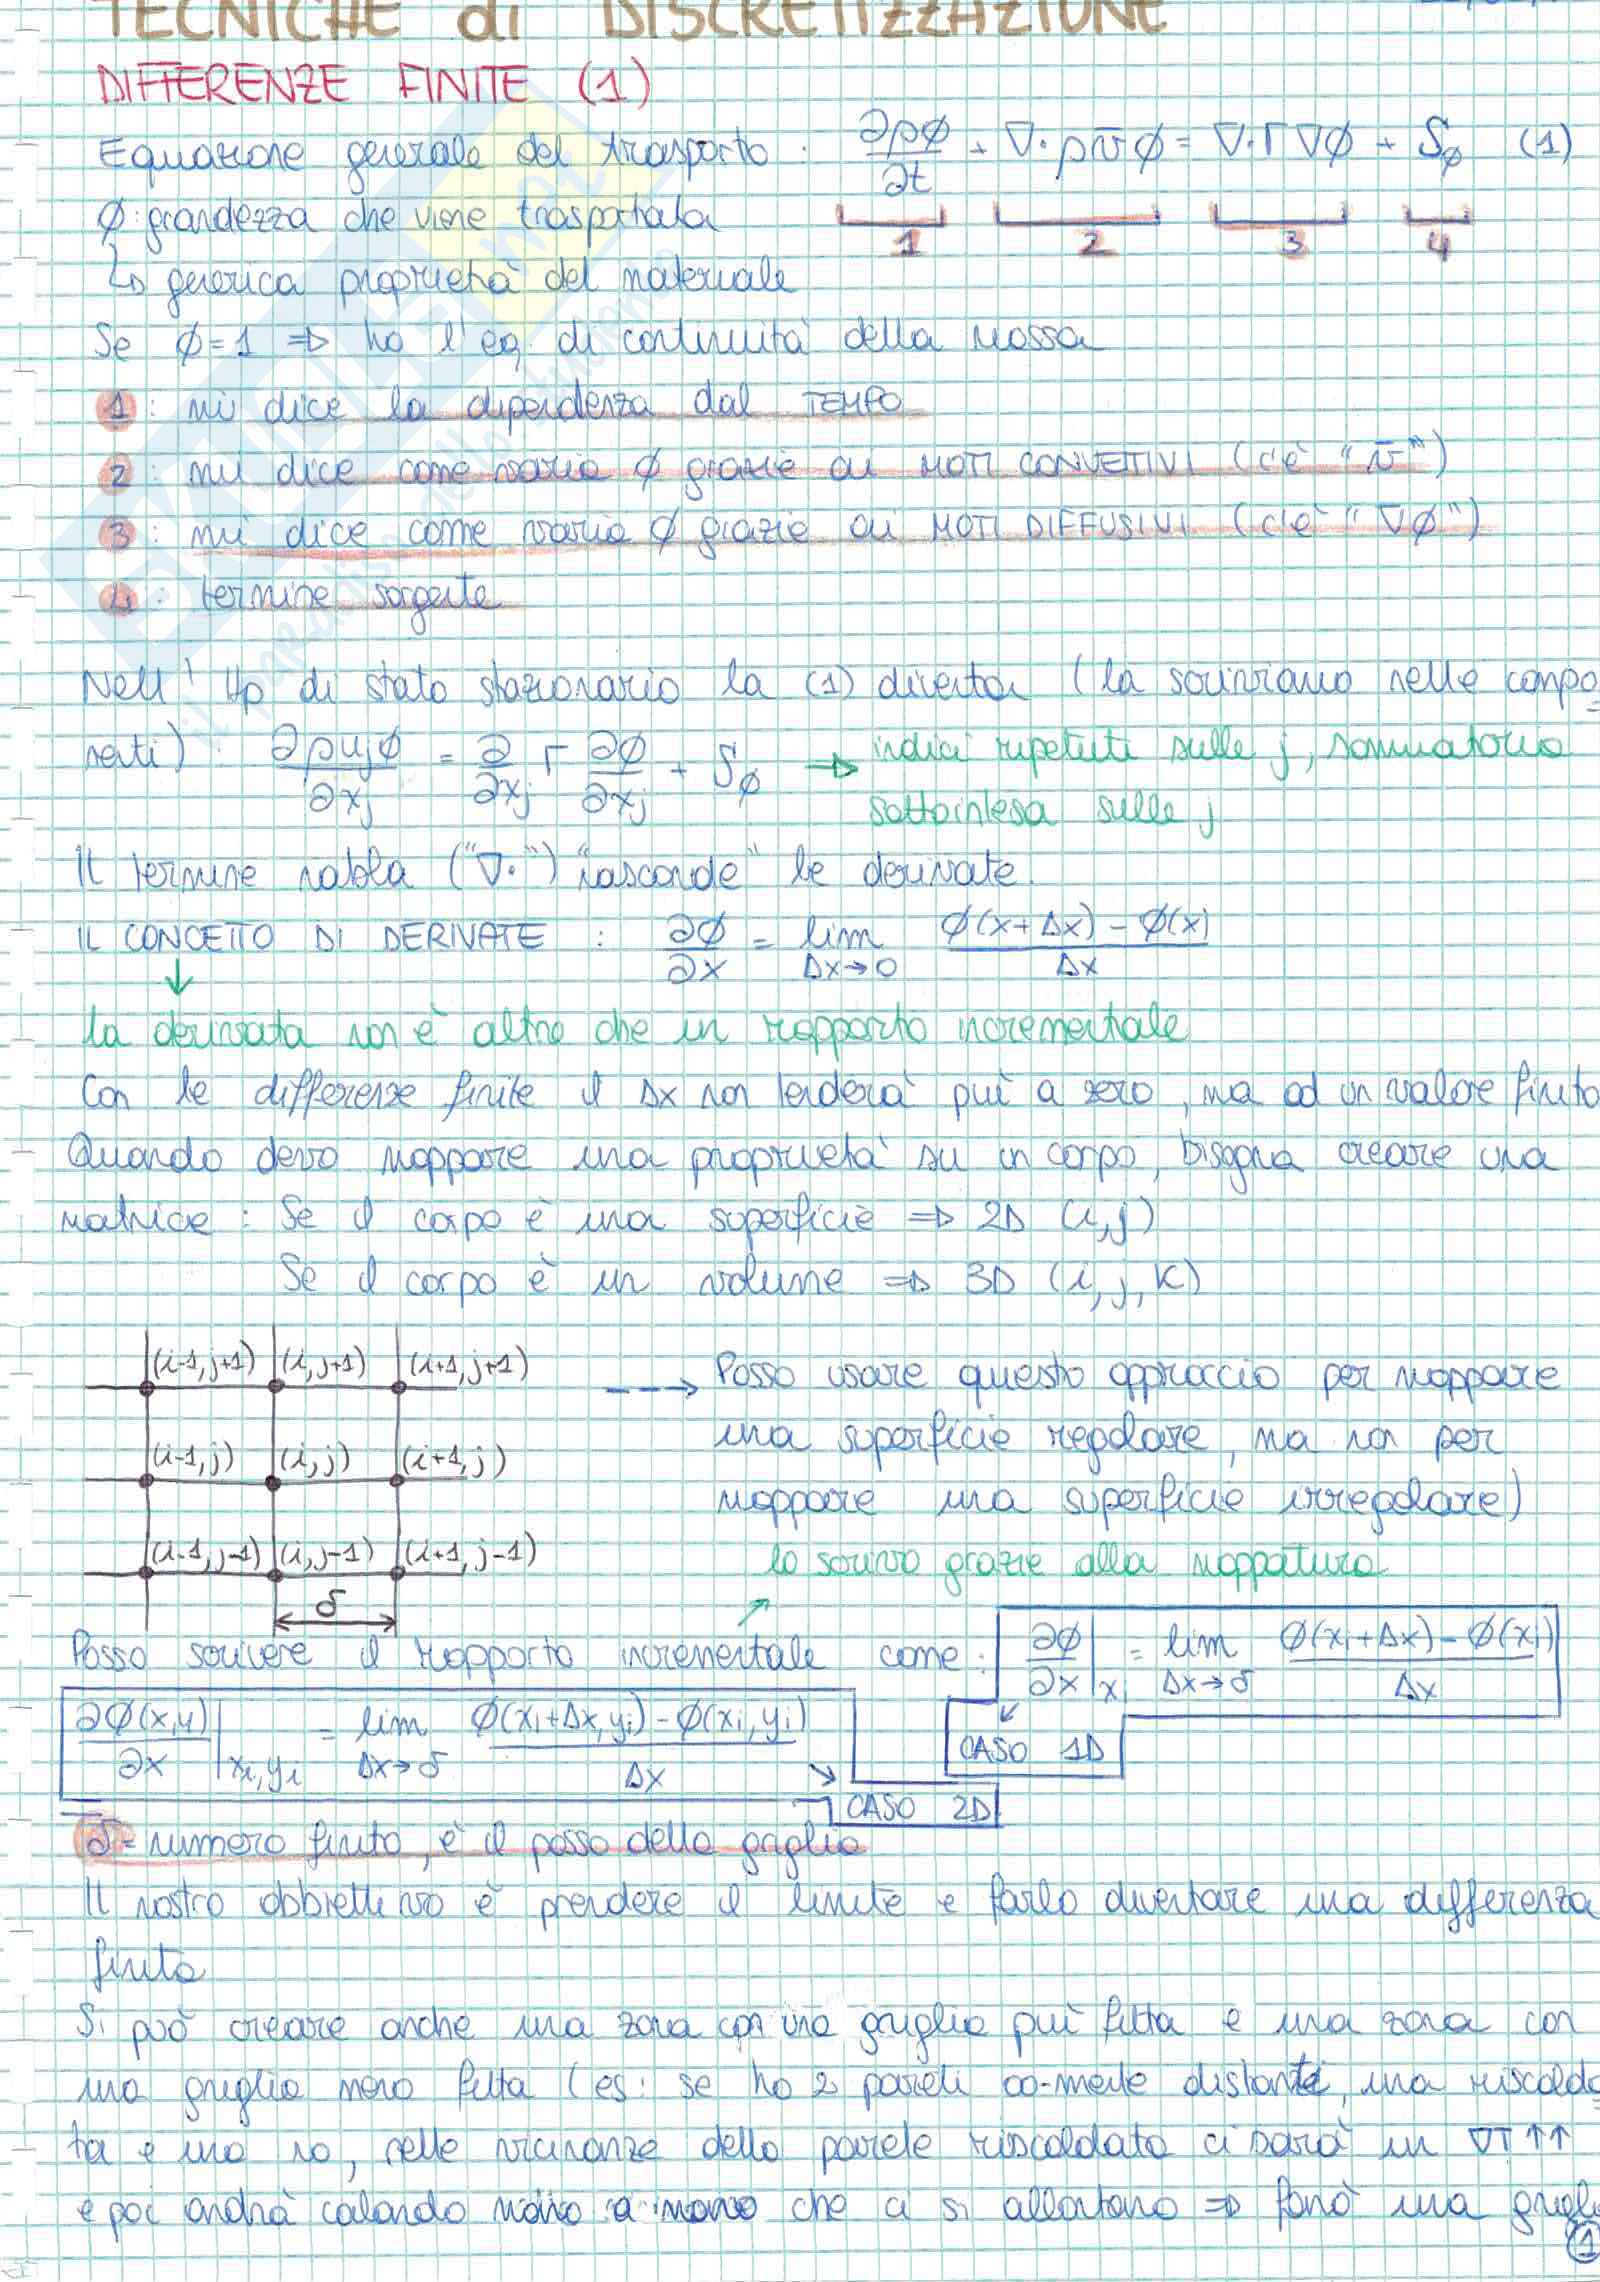 TECNICHE di DISCRETIZZAZIONE
DIFFERENZE FINITE (1)
Equazione generale del trasporto : ∂ρφ/∂t + ∇·ρv̄φ = ∇·Γ∇φ + Sφ (1)
φ: grandezza che viene trasportata
1 2 3 4
↳ generica proprietà del materiale
Se φ=1 ⇒ ho l'eq. di continuità della massa
1: mi dice la dipendenza dal TEMPO
2: mi dice come varia φ grazie ai MOTI CONVETTIVI (c'è "v̄")
3: mi dice come varia φ grazie ai MOTI DIFFUSIVI (c'è "∇φ")
4: termine sorgente
Nell' Hp di stato stazionario la (1) diventa (la scriviamo nelle compo=
nenti) : ∂ρujφ/∂xj = ∂/∂xj Γ ∂φ/∂xj + Sφ → indici ripetuti sulle j, sommatoria
sottointesa sulle j
Il termine nabla ("∇·") "nasconde" le derivate.
IL CONCETTO DI DERIVATE : ∂φ/∂x = lim Δx→0 φ(x+Δx) - φ(x) / Δx
↓
la derivata non è altro che un rapporto incrementale
Con le differenze finite il Δx non tenderà più a zero, ma ad un valore finito
Quando devo mappare una proprietà su un corpo, bisogna creare una
matrice : Se il corpo è una superficie ⇒ 2D (i,j)
Se il corpo è un volume ⇒ 3D (i,j,K)
(i-1,j+1) (i,j+1) (i+1,j+1)
(i-1,j) (i,j) (i+1,j)
(i-1,j-1) (i,j-1) (i+1,j-1)
δ
---→ Posso usare questo approccio per mappare
una superficie regolare, ma non per
mappare una superficie irregolare)
lo scrivo grazie alla mappatura
Posso scrivere il rapporto incrementale come : ∂φ/∂x|xi = lim Δx→δ φ(xi+Δx) - φ(xi) / Δx
CASO 1D
∂φ(x,y)/∂x|xi,yi = lim Δx→δ φ(xi+Δx,yi) - φ(xi,yi) / Δx
CASO 2D
δ = numero finito, è il passo della griglia
Il nostro obbiettivo è prendere il limite e farlo diventare una differenza
finita
Si può creare anche una zona con una griglia più fitta e una zona con
una griglia meno fitta (es: se ho 2 pareti ∞-mente distanti, una riscalda
ta e una no, nelle vicinanze della parete riscaldata ci sarà un ∇T ↑↑
e poi andrà calando mano a mano che ci si allontana ⇒ farò una grigli
1